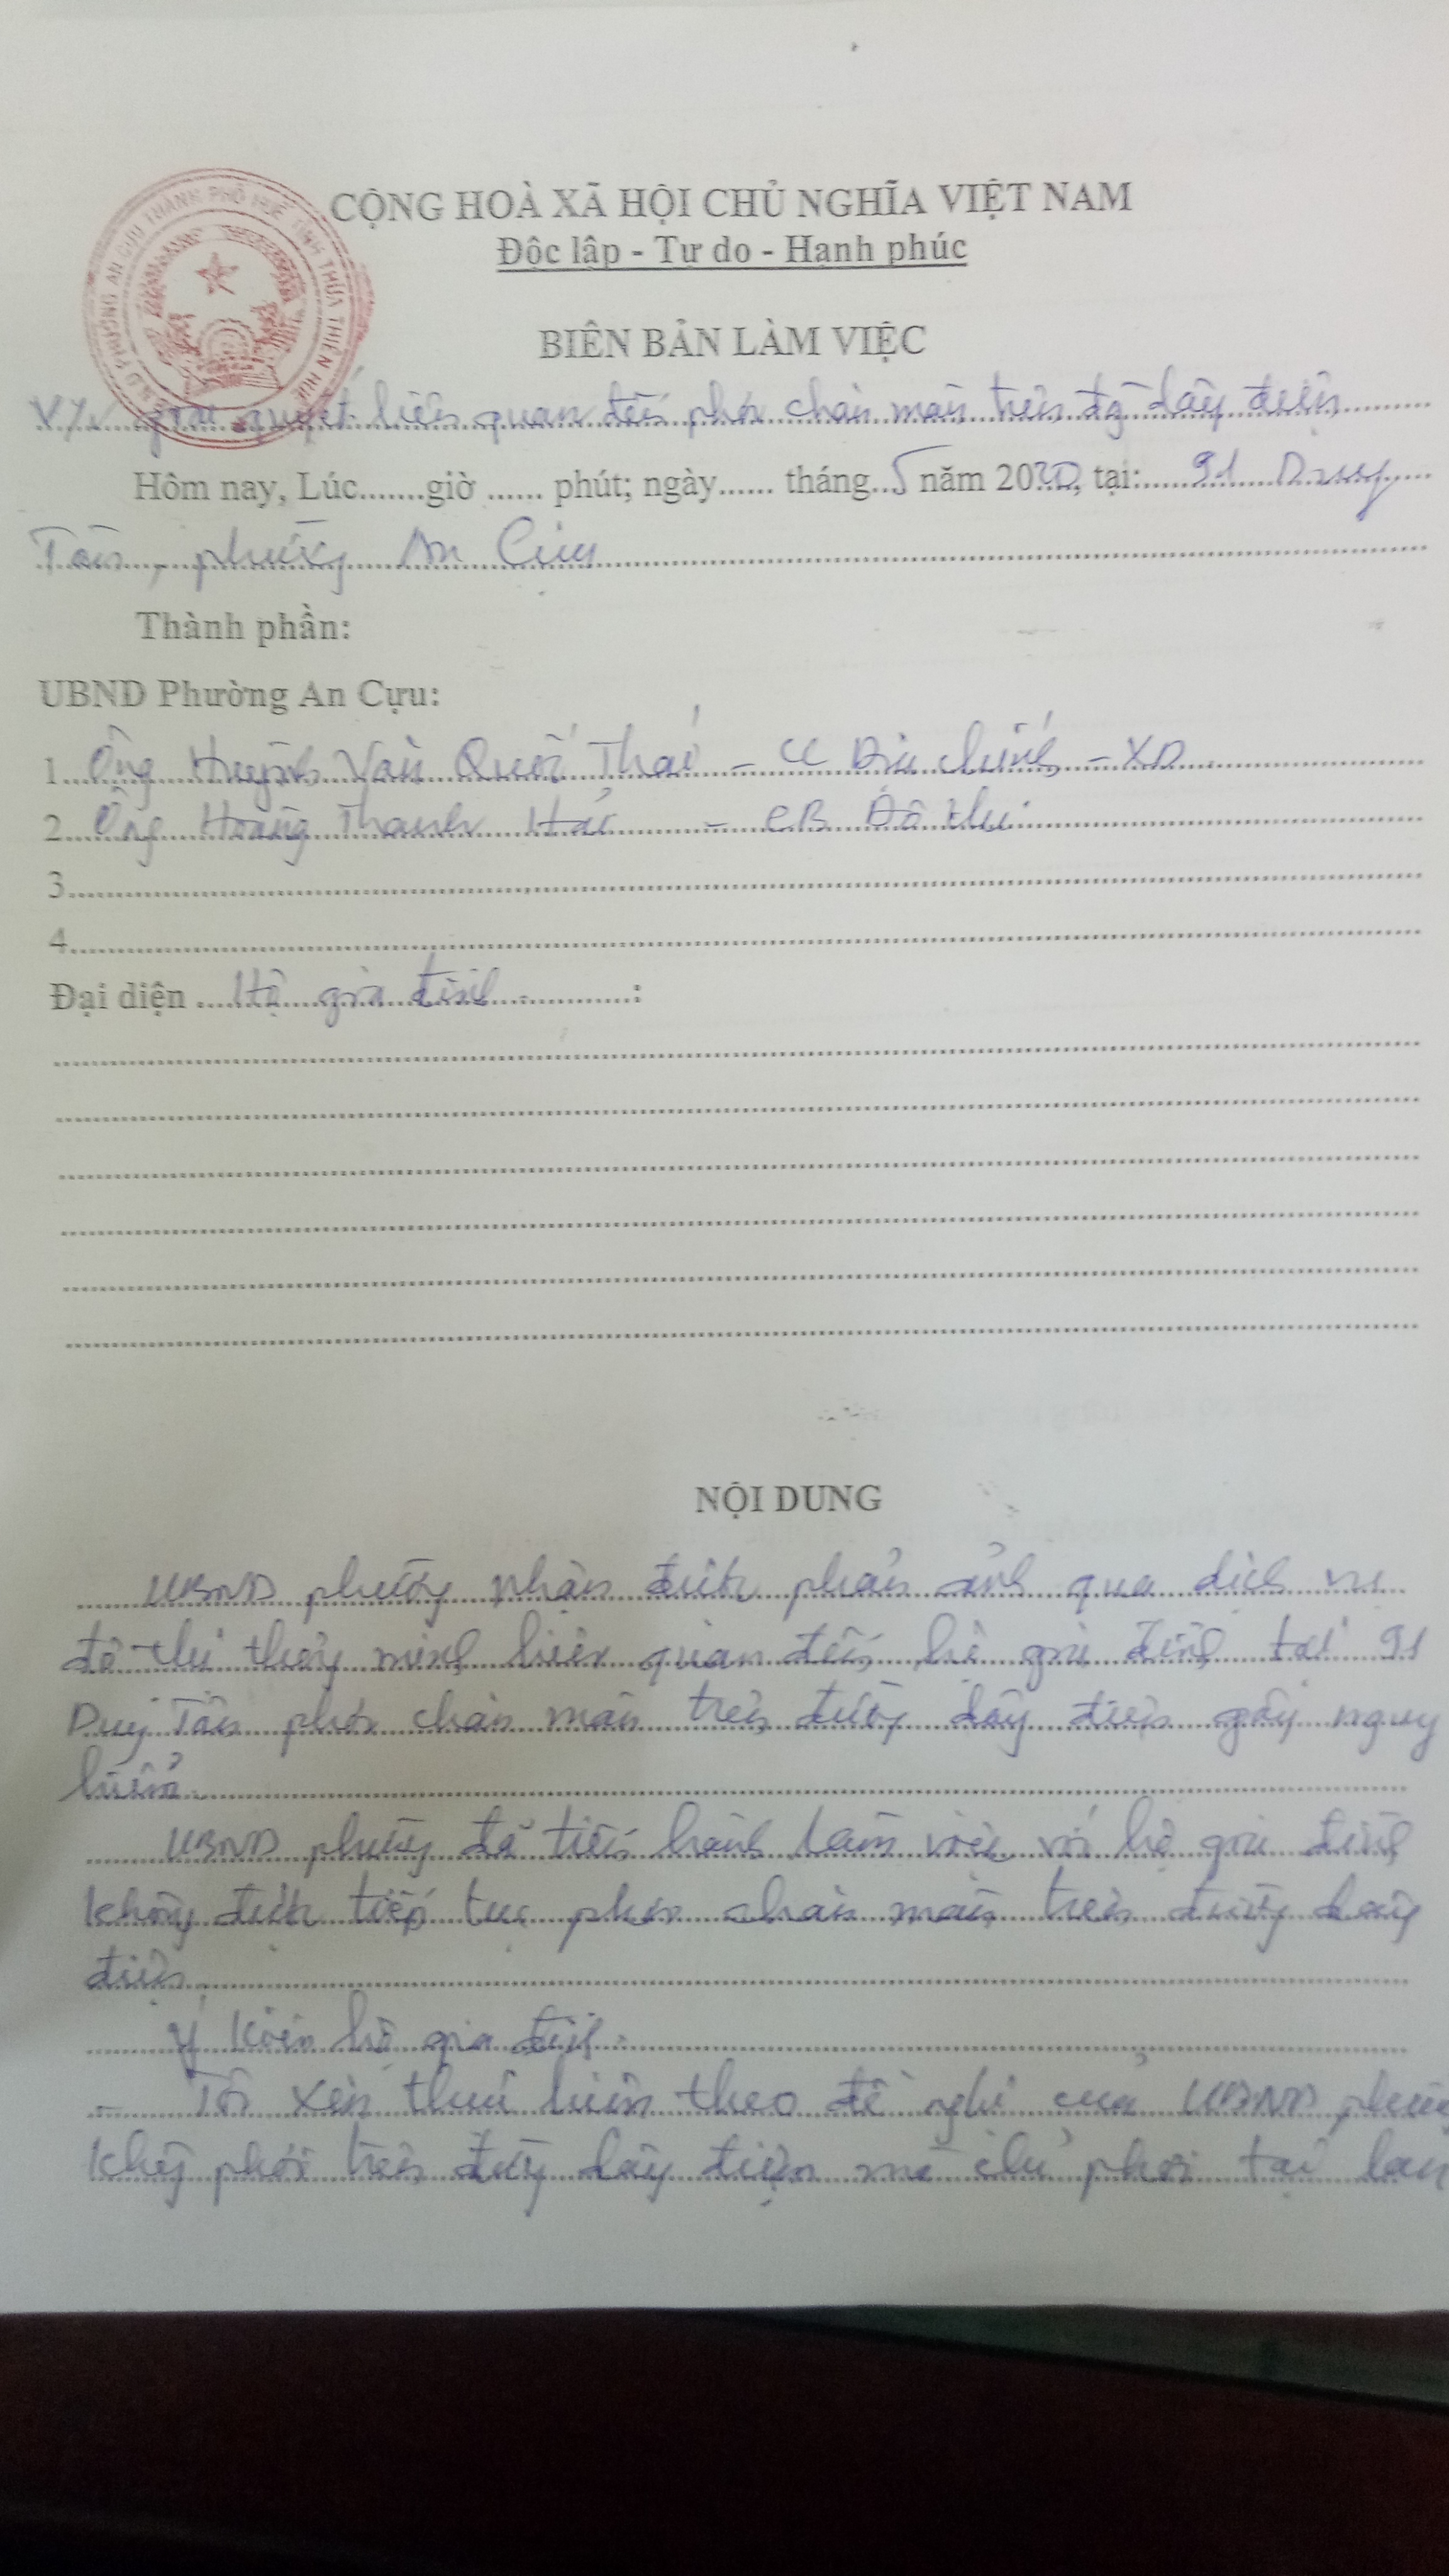 CỘNG HOÀ XÃ HỘI CHỦ NGHĨA VIỆT NAM
Độc lập - Tự do - Hạnh phúc
BIÊN BẢN LÀM VIỆC
V/v giải quyết liên quan đến phơi chăn màn trên đg dây điện
Hôm nay, Lúc.......giờ ...... phút; ngày...... tháng...5 năm 2020, tại: 91 Duy
Tân, phường An Cựu
Thành phần:
UBND Phường An Cựu:
1. Ông Huỳnh Văn Quốc Thái - CC Địa chính - XD
2. Ông Hoàng Thanh Hải - CB Đô thị
3.
4.
Đại diện Hộ gia đình :
NỘI DUNG
UBND phường nhận được phản ánh qua dịch vụ
đô thị thông minh liên quan đến hộ gia đình tại 91
Duy Tân phơi chăn màn trên đường dây điện gây nguy
hiểm.
UBND phường đã tiến hành làm việc với hộ gia đình
không được tiếp tục phơi chăn màn trên đường dây
điện.
Ý kiến hộ gia đình:
- Tôi xin thực hiện theo đề nghị của UBND phường
không phơi trên đường dây điện mà chỉ phơi tại lan